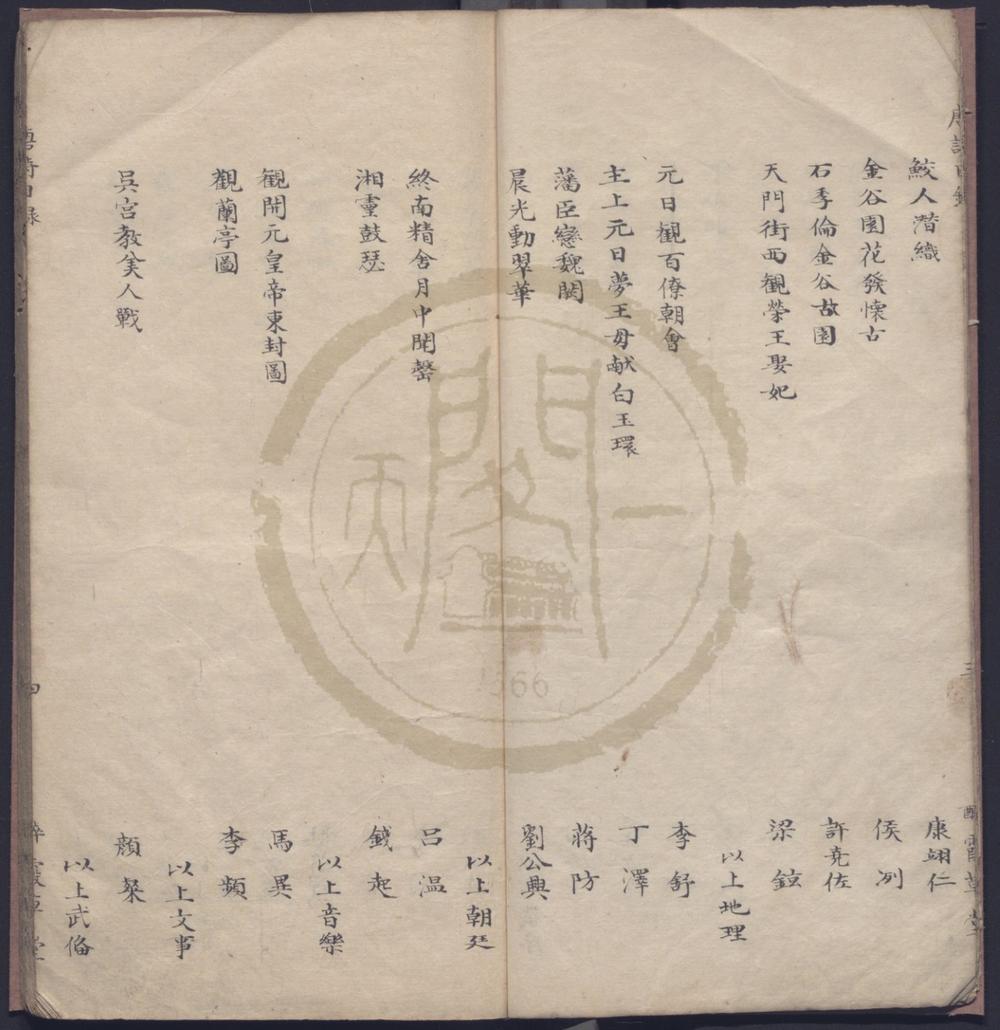 鮫人潛織　康翊仁
金谷園花發懷古　侯冽
石季倫金谷故園　許堯佐
天門街西觀榮王娶妃　梁鉉
以上地理
元日觀百僚朝會　李舒
主上元日夢王母献白玉環　丁澤
藩臣戀魏闕　蔣防
晨光動翠華　劉公興
以上朝廷
終南精舍月中聞罄　呂溫
湘靈鼓瑟　錢起
以上音樂
觀開元皇帝東封圖　馬異
觀蘭亭圖　李頻
以上文事
吳宮教美人戰　顏粲
以上武偹
四
天一閣
1566